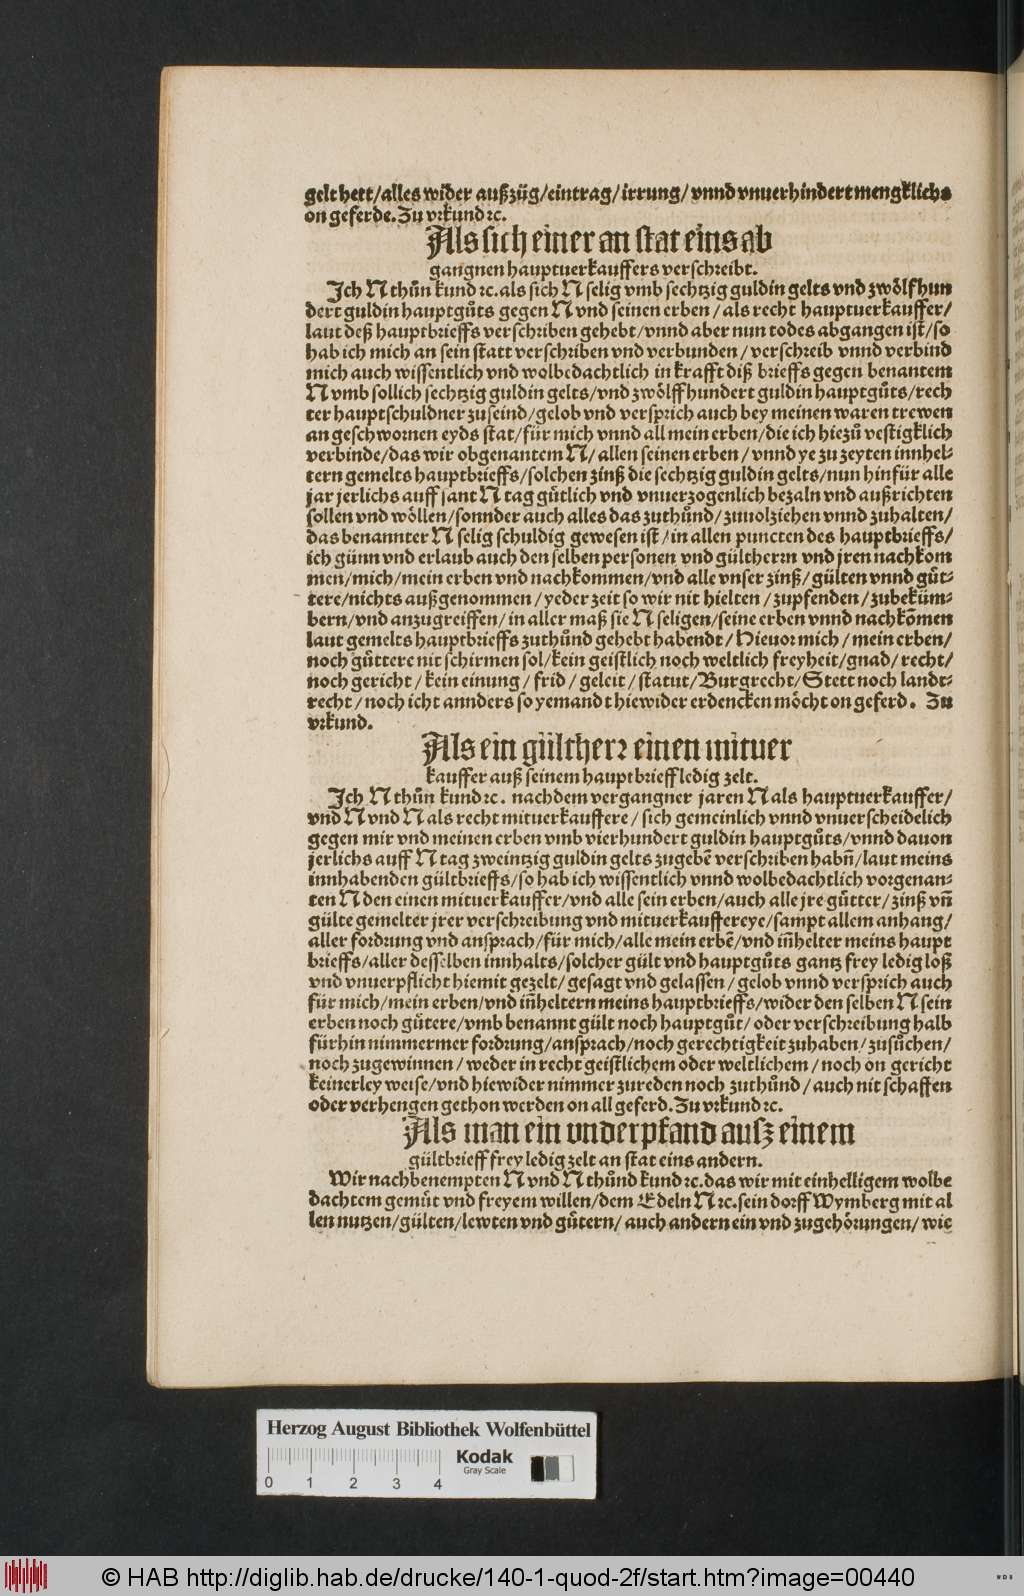 gelt hett/alles wider außzüg/eintrag/irrung/vnnd vnuerhindert mengklichs
on geferde. Zu vrkund ⁊c.
Als sich einer an stat eins ab
gangnen hauptuerkauffers verschreibt.
Ich N thuͦn kund ⁊c. als sich N selig vmb sechtzig guldin gelts vnd zwoͤlfhun
dert guldin hauptguͦts gegen N vnd seinen erben/als recht hauptuerkauffer/
laut deß hauptbrieffs verschriben gehebt/vnnd aber nun todes abgangen ist/so
hab ich mich an sein statt verschriben vnd verbunden/verschreib vnnd verbind
mich auch wissentlich vnd wolbedachtlich in krafft diß brieffs gegen benantem
N vmb sollich sechtzig guldin gelts/vnd zwoͤlff hundert guldin hauptguͦts/rech
ter hauptschuldner zuseind/gelob vnd versprich auch bey meinen waren trewen
an geschwornen eyds stat/für mich vnnd all mein erben/die ich hiezuͦ vestigklich
verbinde/das wir obgenantem N/allen seinen erben/vnnd ye zu zeyten innhel⸗
tern gemelts hauptbrieffs/solchen zinß die sechtzig guldin gelts/nun hinfür alle
jar jerlichs auff sant N tag guͤtlich vnd vnuerzogenlich bezaln vnd außrichten
sollen vnd woͤllen/sonnder auch alles das zuthuͦnd/zuuolziehen vnnd zuhalten/
das benannter N selig schuldig gewesen ist/in allen puncten des hauptbrieffs/
ich günn vnd erlaub auch den selben personen vnd gültherrn vnd jren nachkom
men/mich/mein erben vnd nachkommen/vnd alle vnser zinß/gülten vnnd guͤt⸗
tere/nichts außgenommen/yeder zeit so wir nit hielten/zupfenden/zubeküm⸗
bern/vnd anzugreiffen/in aller maß sie N seligen/seine erben vnnd nachkom̄en
laut gemelts hauptbrieffs zuthuͦnd gehebt habendt/Hieuor mich/mein erben/
noch guͤttere nit schirmen sol/kein geistlich noch weltlich freyheit/gnad/recht/
noch gericht/kein einung/frid/geleit/statut/Burgrecht/Stett noch landt⸗
recht/noch icht annders so yemandt hiewider erdencken moͤcht on geferd. Zu
vrkund.
Als ein gültherr einen mituer
kauffer auß seinem hauptbrieff ledig zelt.
Ich N thuͦn kund ⁊c. nachdem vergangner jaren N als hauptuerkauffer/
vnd N vnd N als recht mituerkauffere/sich gemeinlich vnnd vnuerscheidelich
gegen mir vnd meinen erben vmb vierhundert guldin hauptguͦts/vnnd dauon
jerlichs auff N tag zweintzig guldin gelts zugebē verschriben habn̄/laut meins
innhabenden gültbrieffs/so hab ich wissentlich vnnd wolbedachtlich vorgenan⸗
ten N den einen mituerkauffer/vnd alle sein erben/auch alle jre guͤtter/zinß vn̄
gülte gemelter jrer verschreibung vnd mituerkauffereye/sampt allem anhang/
aller fordrung vnd ansprach/für mich/alle mein erbē/vnd in̄helter meins haupt
brieffs/aller desselben innhalts/solcher gült vnd hauptguͦts gantz frey ledig loß
vnd vnuerpflicht hiemit gezelt/gesagt vnd gelassen/gelob vnnd versprich auch
für mich/mein erben/vnd in̄heltern meins hauptbrieffs/wider den selben N sein
erben noch guͤtere/vmb benannt gült noch hauptguͦt/oder verschreibung halb
fürhin nimmermer fordrung/ansprach/noch gerechtigkeit zuhaben/zusuͦchen/
noch zugewinnen/weder in recht geistlichem oder weltlichem/noch on gericht
keinerley weise/vnd hiewider nimmer zureden noch zuthuͦnd/auch nit schaffen
oder verhengen gethon werden on all geferd. Zu vrkund ⁊c.
Als man ein vnderpfand ausz einem
gültbrieff frey ledig zelt an stat eins andern.
Wir nachbenempten N vnd N thuͦnd kund ⁊c. das wir mit einhelligem wolbe
dachtem gemuͤt vnd freyem willen/dem Edeln N ⁊c. sein dorff Wymberg mit al
len nutzen/gülten/lewten vnd guͤtern/auch andern ein vnd zugehoͤrungen/wie
Herzog August Bibliothek Wolfenbüttel
Kodak
Gray Scale
0 1 2 3 4
© HAB http://diglib.hab.de/drucke/140-1-quod-2f/start.htm?image=00440